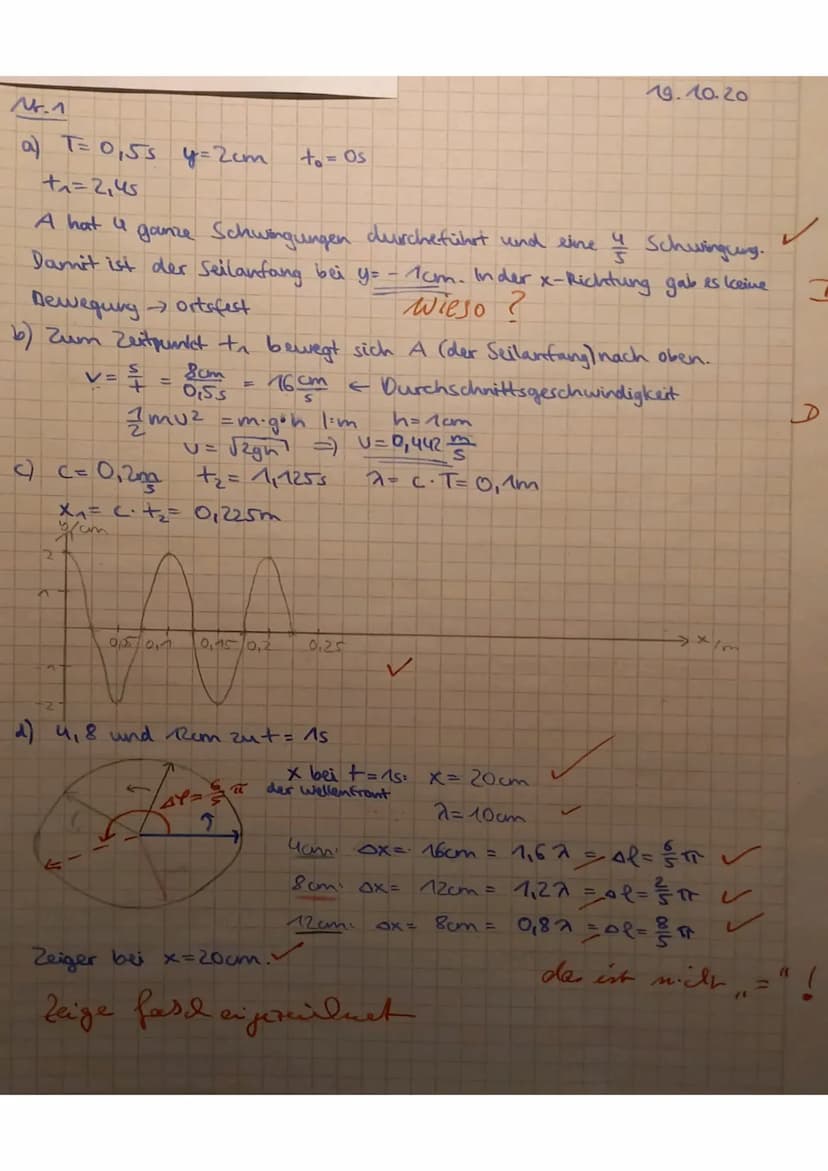 19.10.20
Nr. 1
a) T = 0,5s y = 2cm t₀ = 0s
t₁ = 2,4s
A hat 4 ganze Schwingungen durcheführt und eine 4/5 Schwingung. ✓
Damit ist der Seilanfang bei y = - 1cm. In der x-Richtung gab es keine
Bewegung → ortsfest Wieso ?
b) Zum Zeitpunkt t₁ bewegt sich A (der Seilanfang) nach oben.
v = s/t = 8cm/0,5s = 16 cm/s ← Durchschnittsgeschwindigkeit
1/2 mv² = m·g·h |:m h = 1cm
v = √2gh ⇒ v = 0,442 m/s
c) c = 0,2 m/s t₂ = 1,125s λ = c · T = 0,1m
x₁ = c · t₂ = 0,225m
y/cm
2
1
0,05 0,1 0,15 0,2 0,25 x/m
-1
-2
✓
d) 4, 8 und 12cm zu t = 1s
x bei t = 1s: x = 20cm ✓
der Wellenfront
λ = 10cm ✓
Δφ = 6/5 π
4cm: Δx = 16cm = 1,6 λ = Δφ = 6/5 π ✓
8cm: Δx = 12cm = 1,2 λ = Δφ = 2/5 π ✓
12cm: Δx = 8cm = 0,8 λ = Δφ = 8/5 π ✓
Zeiger bei x = 20cm. ✓
da ist nicht „=“ !
Zeige falsch eigezeichnet